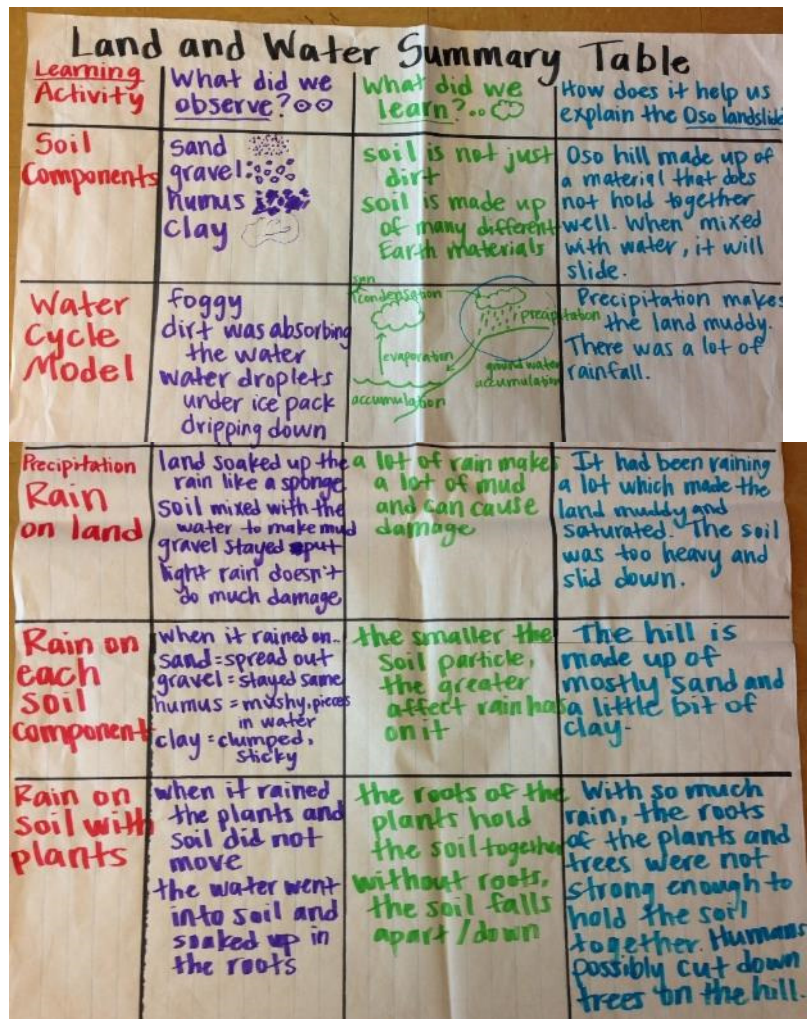 Land and Water Summary Table
Learning
Activity
What did we
observe?
What did we
learn?..
How does it help us
explain the Oso landslide
Soil
Components
sand
gravel:
humus
clay
soil is not just
dirt
soil is made up
of many different
Earth materials
Oso hill made up of
a material that does
not hold together
well. When mixed
with water, it will
slide.
Water
Cycle
Model
foggy
dirt was absorbing
the water
water droplets
under ice pack
dripping down
sun
condensation
precipitation
evaporation
ground water
accumulation
accumulation
Precipitation makes
the land muddy.
There was a lot of
rainfall.
Precipitation
Rain
on land
land soaked up the
rain like a sponge
soil mixed with the
water to make mud
gravel stayed put
light rain doesn't
do much damage
a lot of rain makes
a lot of mud
and can cause
damage
It had been raining
a lot which made the
land muddy and
saturated. The soil
was too heavy and
slid down.
Rain on
each
soil
component
when it rained on..
sand = spread out
gravel = stayed same
humus = mushy, pieces
in water
clay = clumped,
sticky
the smaller the
soil particle,
the greater
affect rain has
on it
The hill is
made up of
mostly sand and
a little bit of
clay.
Rain on
soil with
plants
when it rained
the plants and
soil did not
move
the water went
into soil and
soaked up in
the roots
the roots of the
plants hold
the soil together
without roots,
the soil falls
apart/down
With so much
rain, the roots
of the plants and
trees were not
strong enough to
hold the soil
together. Humans
possibly cut down
trees on the hill.